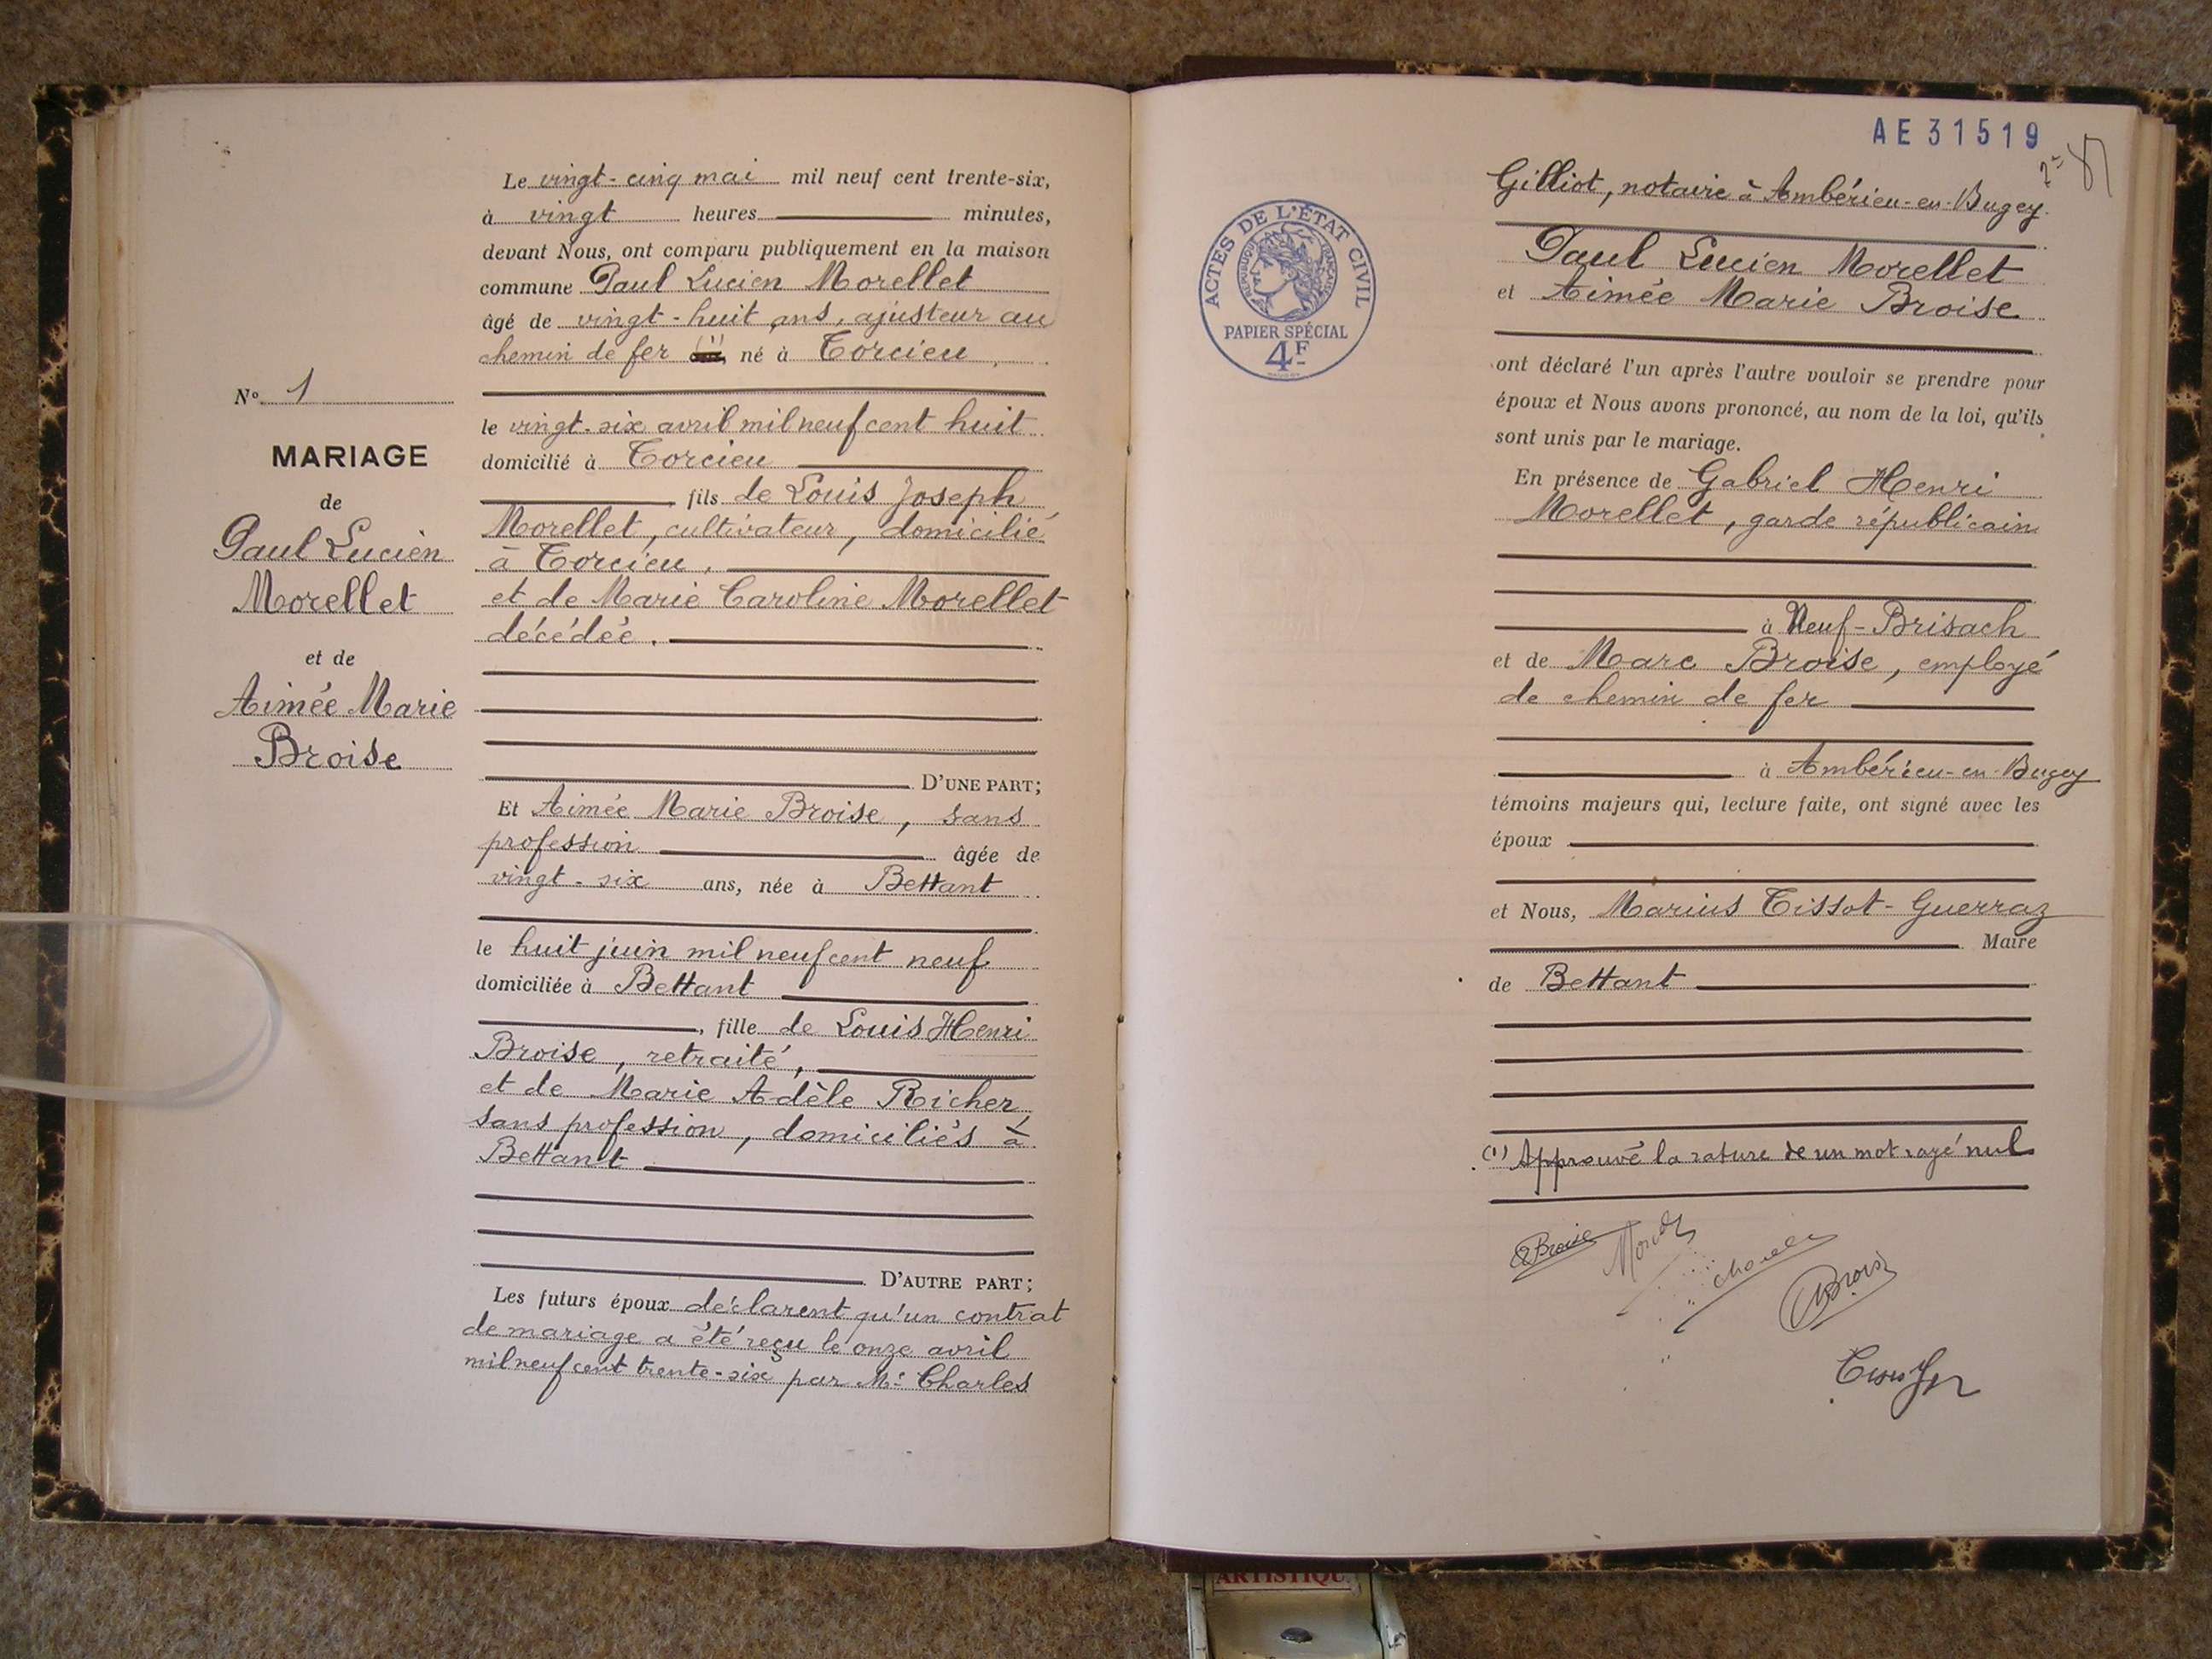 N° 1
MARIAGE
de
Paul Lucien
Morellet
et de
Aimée Marie
Broise
Le vingt-cinq mai mil neuf cent trente-six,
à vingt heures minutes,
devant Nous, ont comparu publiquement en la maison
commune Paul Lucien Morellet
âgé de vingt-huit ans, ajusteur au
chemin de fer (1), né à Torcieu,
le vingt-six avril mil neuf cent huit
domicilié à Torcieu
fils de Louis Joseph
Morellet, cultivateur, domicilié
à Torcieu,
et de Marie Caroline Morellet
décédée.
D'UNE PART;
Et Aimée Marie Broise, sans
profession âgée de
vingt-six ans, née à Bettant
le huit juin mil neuf cent neuf
domiciliée à Bettant
, fille de Louis Henri
Broise, retraité,
et de Marie Adèle Richer,
sans profession, domiciliés à
Bettant
D'AUTRE PART;
Les futurs époux déclarent qu'un contrat
de mariage a été reçu le onze avril
mil neuf cent trente-six par Me Charles
AE31519
ACTES DE L'ÉTAT CIVIL
RÉPUBLIQUE FRANÇAISE
PAPIER SPÉCIAL
4F
Gilliot, notaire à Ambérieu-en-Bugey.
Paul Lucien Morellet
et Aimée Marie Broise
ont déclaré l'un après l'autre vouloir se prendre pour
époux et Nous avons prononcé, au nom de la loi, qu'ils
sont unis par le mariage.
En présence de Gabriel Henri
Morellet, garde républicain
à Neuf-Brisach
et de Marc Broise, employé
de chemin de fer
à Ambérieu-en-Bugey
témoins majeurs qui, lecture faite, ont signé avec les
époux
et Nous, Marius Tissot-Guerraz
Maire
de Bettant
(1) Approuvé la rature de un mot rayé nul
Broise
Broise
ARTISTIQU